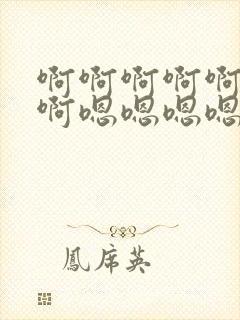 啊啊啊啊啊
啊嗯嗯嗯嗯
鳳席英